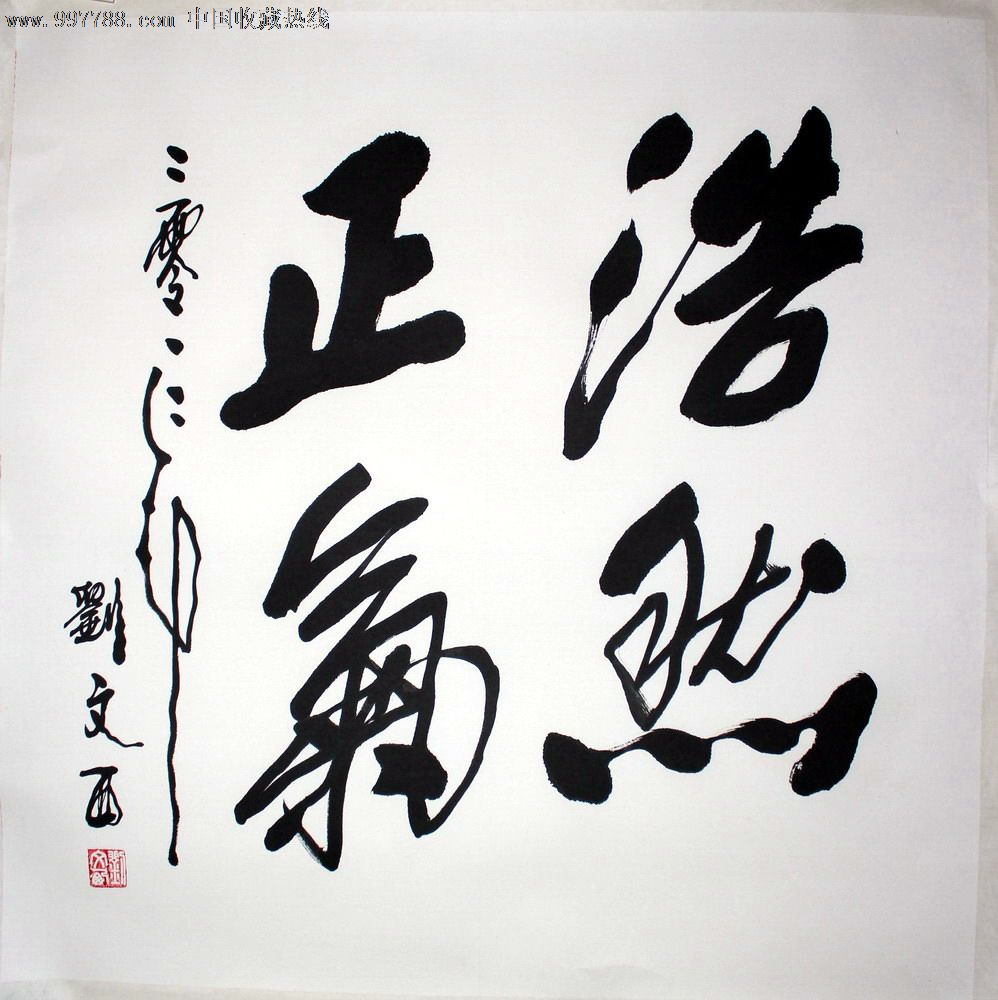 www.997788.com 中国收藏热线
浩然
正氣
二零一二年
劉文西